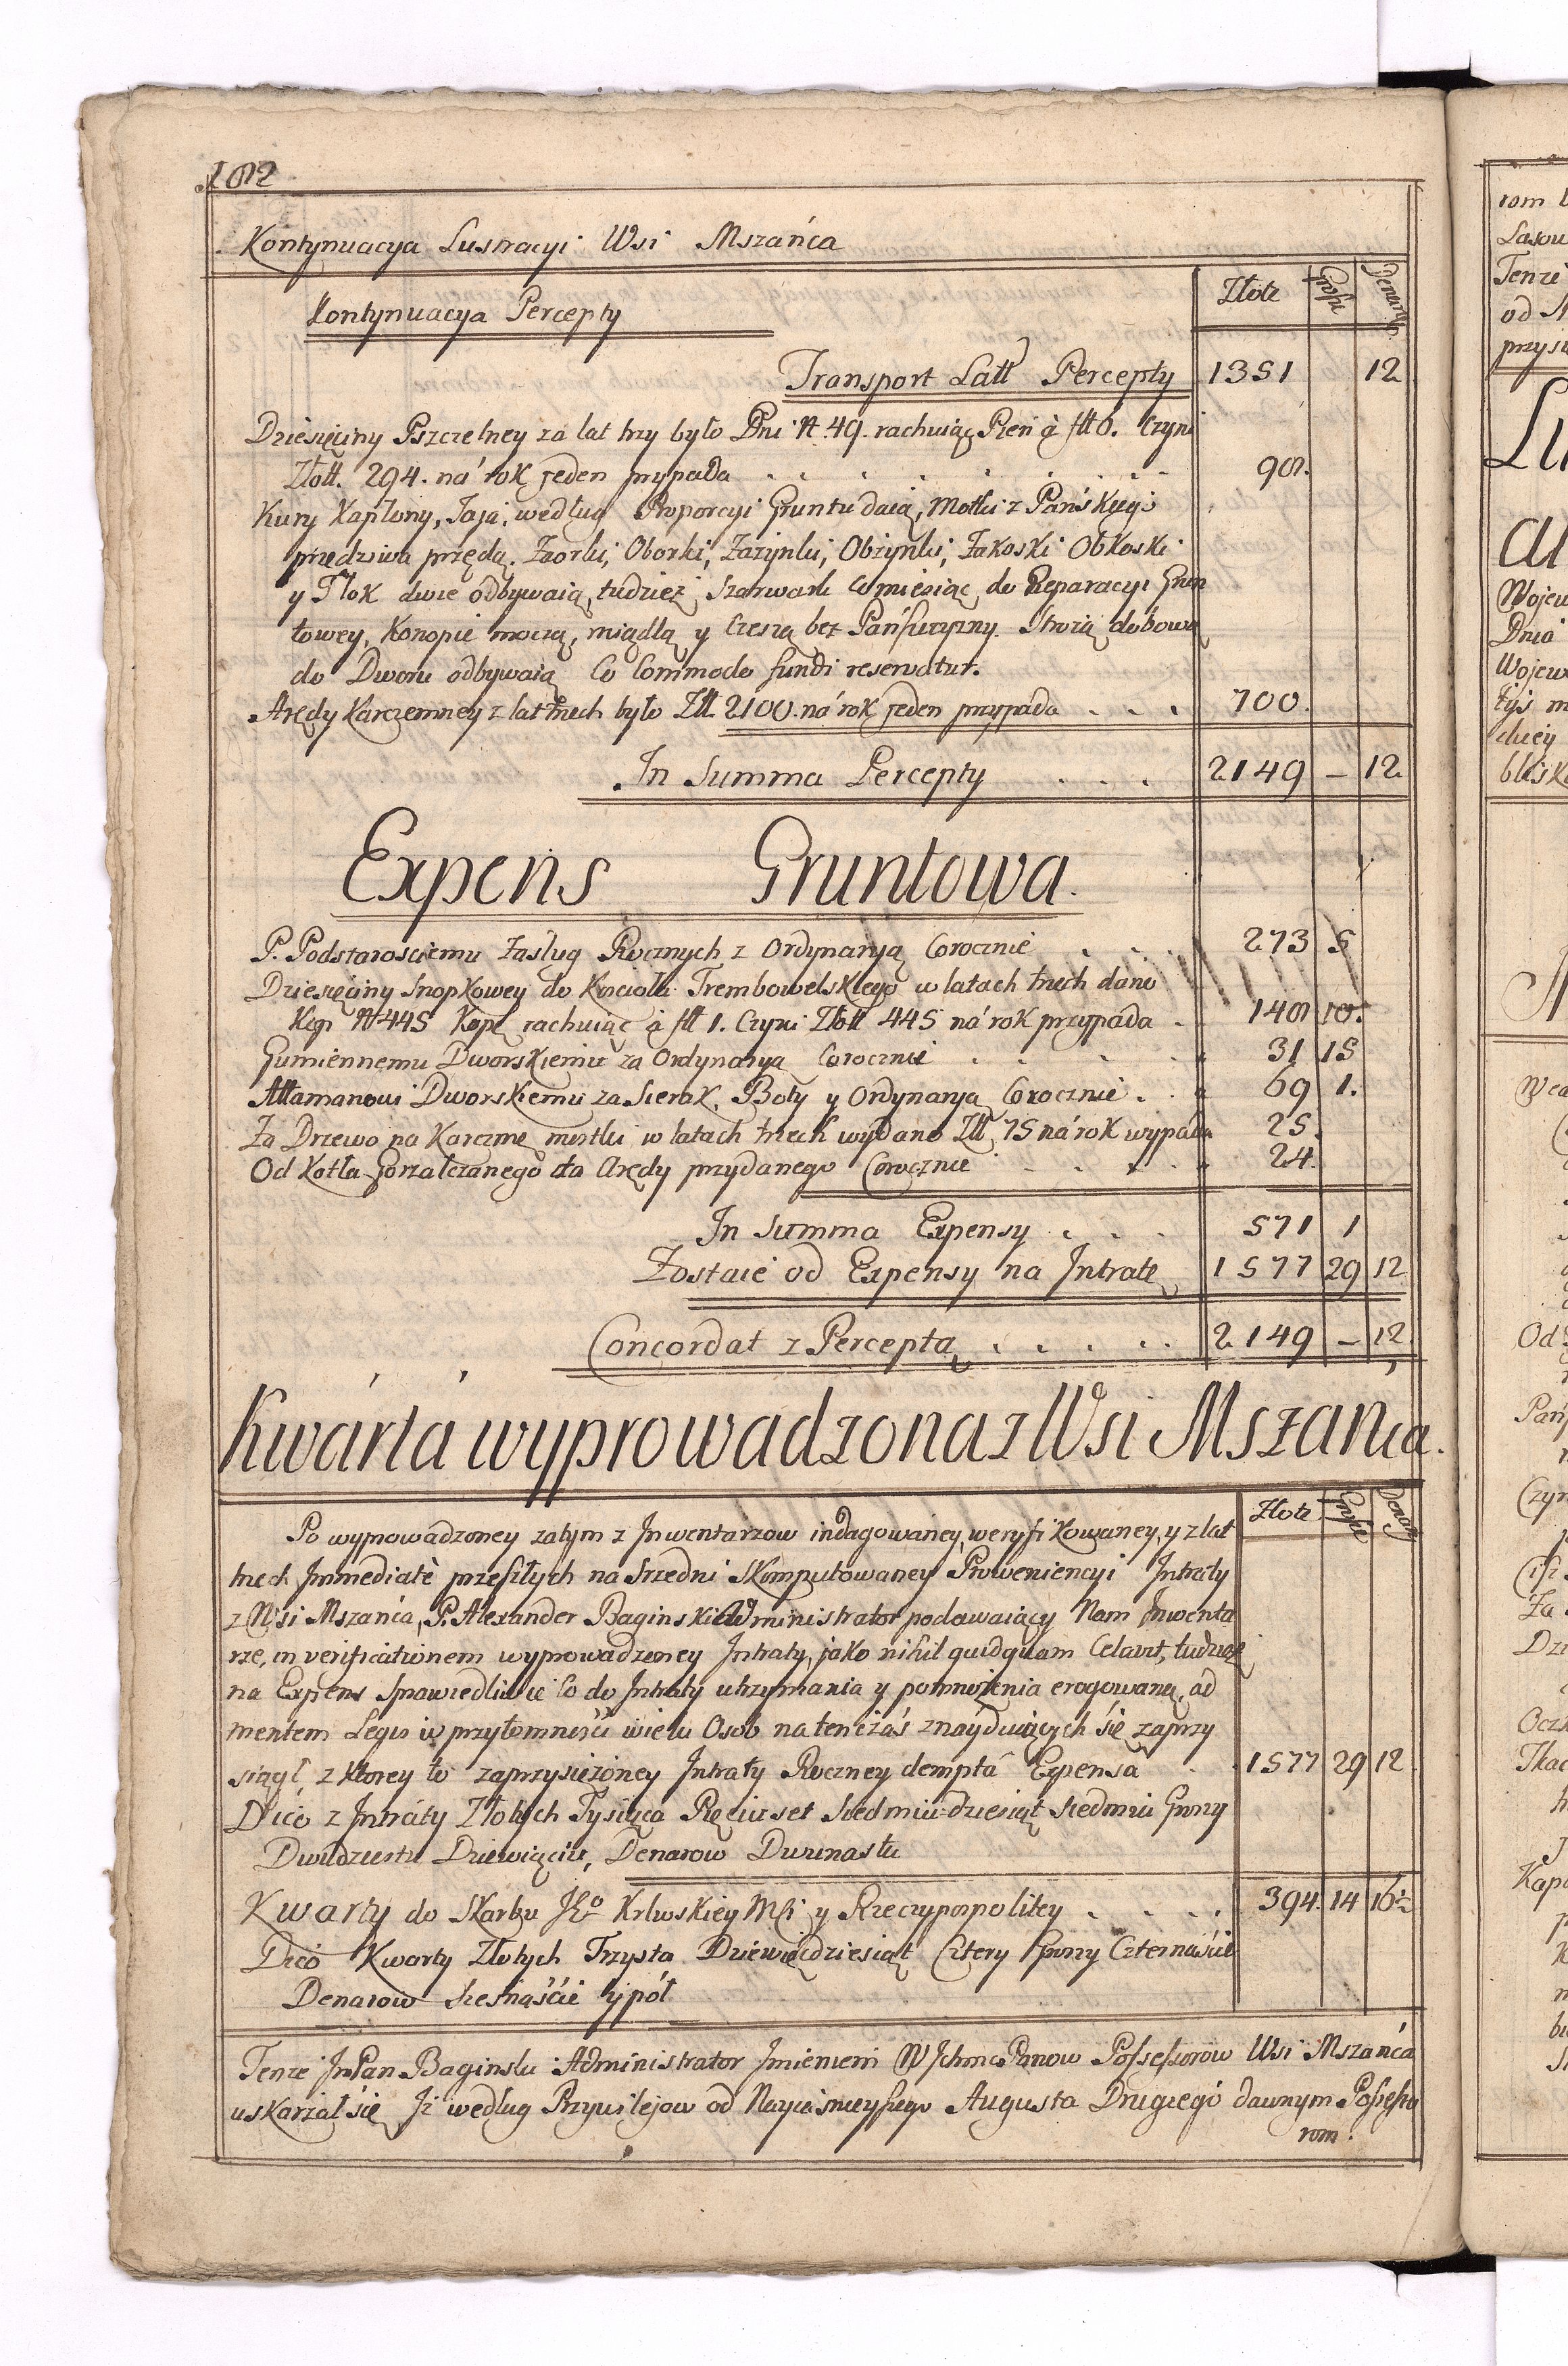 182
Kontynuacya Lustracyi Wsi Mszańca
Kontynuacya Percepty
Złote Grosze Denary
Transport Latt Percepty 1351 12
Dziesięciny Pszczelney za lat trzy było Pni N 49. rachuiąc Pień à fll 6. Czyni
Złott. 294. ná rok jeden przypada 98.
Kury Kapłony, Jaja, według Proporcyi Gruntu daią, Motki z Pańskiego
przędziwa przędą. Zaorki, Oborki, Zażynki, Obżynki, Zakoski Obkoski
y Tłok dwie odbywaią, tudzież Szarwark Comiesiąc do Reparacyi Grun
towey, Konopie moczą, miądlą y Czeszą bez Pańszczyzny. Strożą dobową
do Dworu odbywaią Co Commodo fundi reservatur.
Arędy Karczemney z lat trzech było Zll. 2100. ná rok jeden przypáda 700.
In Summa Percepty 2149 – 12.
Expens Gruntowa.
P. Podstarosciemu Zasług Rocznych z Ordynaryą Corocznie 273 5
Dziesięciny Snopkowey do Kościoła Trembowelskiego w latach trzech dano
Kop N 445 Kopę rachuiąc à fll 1. Czyni Złott 445 ná rok przypáda 148 10.
Gumiennemu Dworskiemu za Ordynaryą Corocznie 31 15
Attamanowi Dworskiemu za Sierak, Boty y Ordynaryą Corocznie 69 1.
Za Drzewo na Karczmę mostki w latach trzech wydano Zll 75 ná rok wypada 25.
Od Kotła Gorzałczanego do Arędy przydanego Corocznie 24.
In Summa Expensy 571 1
Zostaie od Expensy na Intratę 1577 29 12
Concordat z Perceptą 2149 – 12.
Kwarta wyprowadzona z Wsi Mszańca.
Złote Grosze Denary
Po wyprowadzoney zatym z Inwentarzow indagowaney, weryfikowaney, y z lat
trzech Immediatè przeszłych na Srzedni Skomputowaney Proweniencyi Intraty
z Wsi Mszańca, P. Alexander Baginski Administrator podawaiący Nam Inwenta
rze, in verificationem wyprowadzoney Intraty, jako nihil quidquam Celavit, tudzież
na Expens Sprawiedliwie Co do Intraty utrzymania y pomnożenia erogowaną, ad
mentem Legis w przytomności wielu Osob na tenczas znayduiących się zaprzy
siągł, z ktorey to zaprzysiężoney Intraty Roczney demptâ Expensâ 1577 29 12
Dico z Intráty Złotych Tysiąca Pięciuset Siedmiudziesiąt Siedmiu Groszy
Dwudziestu Dziewięciu, Denarow Dwunastu
Kwarty do Skarbu JKo Krlwskiey Mći y Rzeczypospolitey 394. 14 16½
Dico Kwarty Złotych Trzysta Dziewięćdziesiąt Cztery Groszy Czternaście
Denarow Szesnaście y poł
Tenże JmPan Baginski Administrator Imieniem W Jchmć Panow Possessorow Wsi Mszańca
uskarżał się Jż według Przywilejow od Nayiaśnieyszego Augusta Drugiego dawnym Possesso
rom.